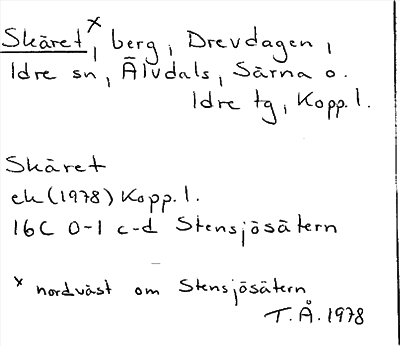 Skäret x, berg, Drevdagen,
Idre sn, Älvdals, Särna o.
Idre tg, Kopp. l.
Skäret
ek (1978) Kopp. l.
16C 0-1 c-d Stensjösätern
x nordväst om Stensjösätern
T. Å. 1978